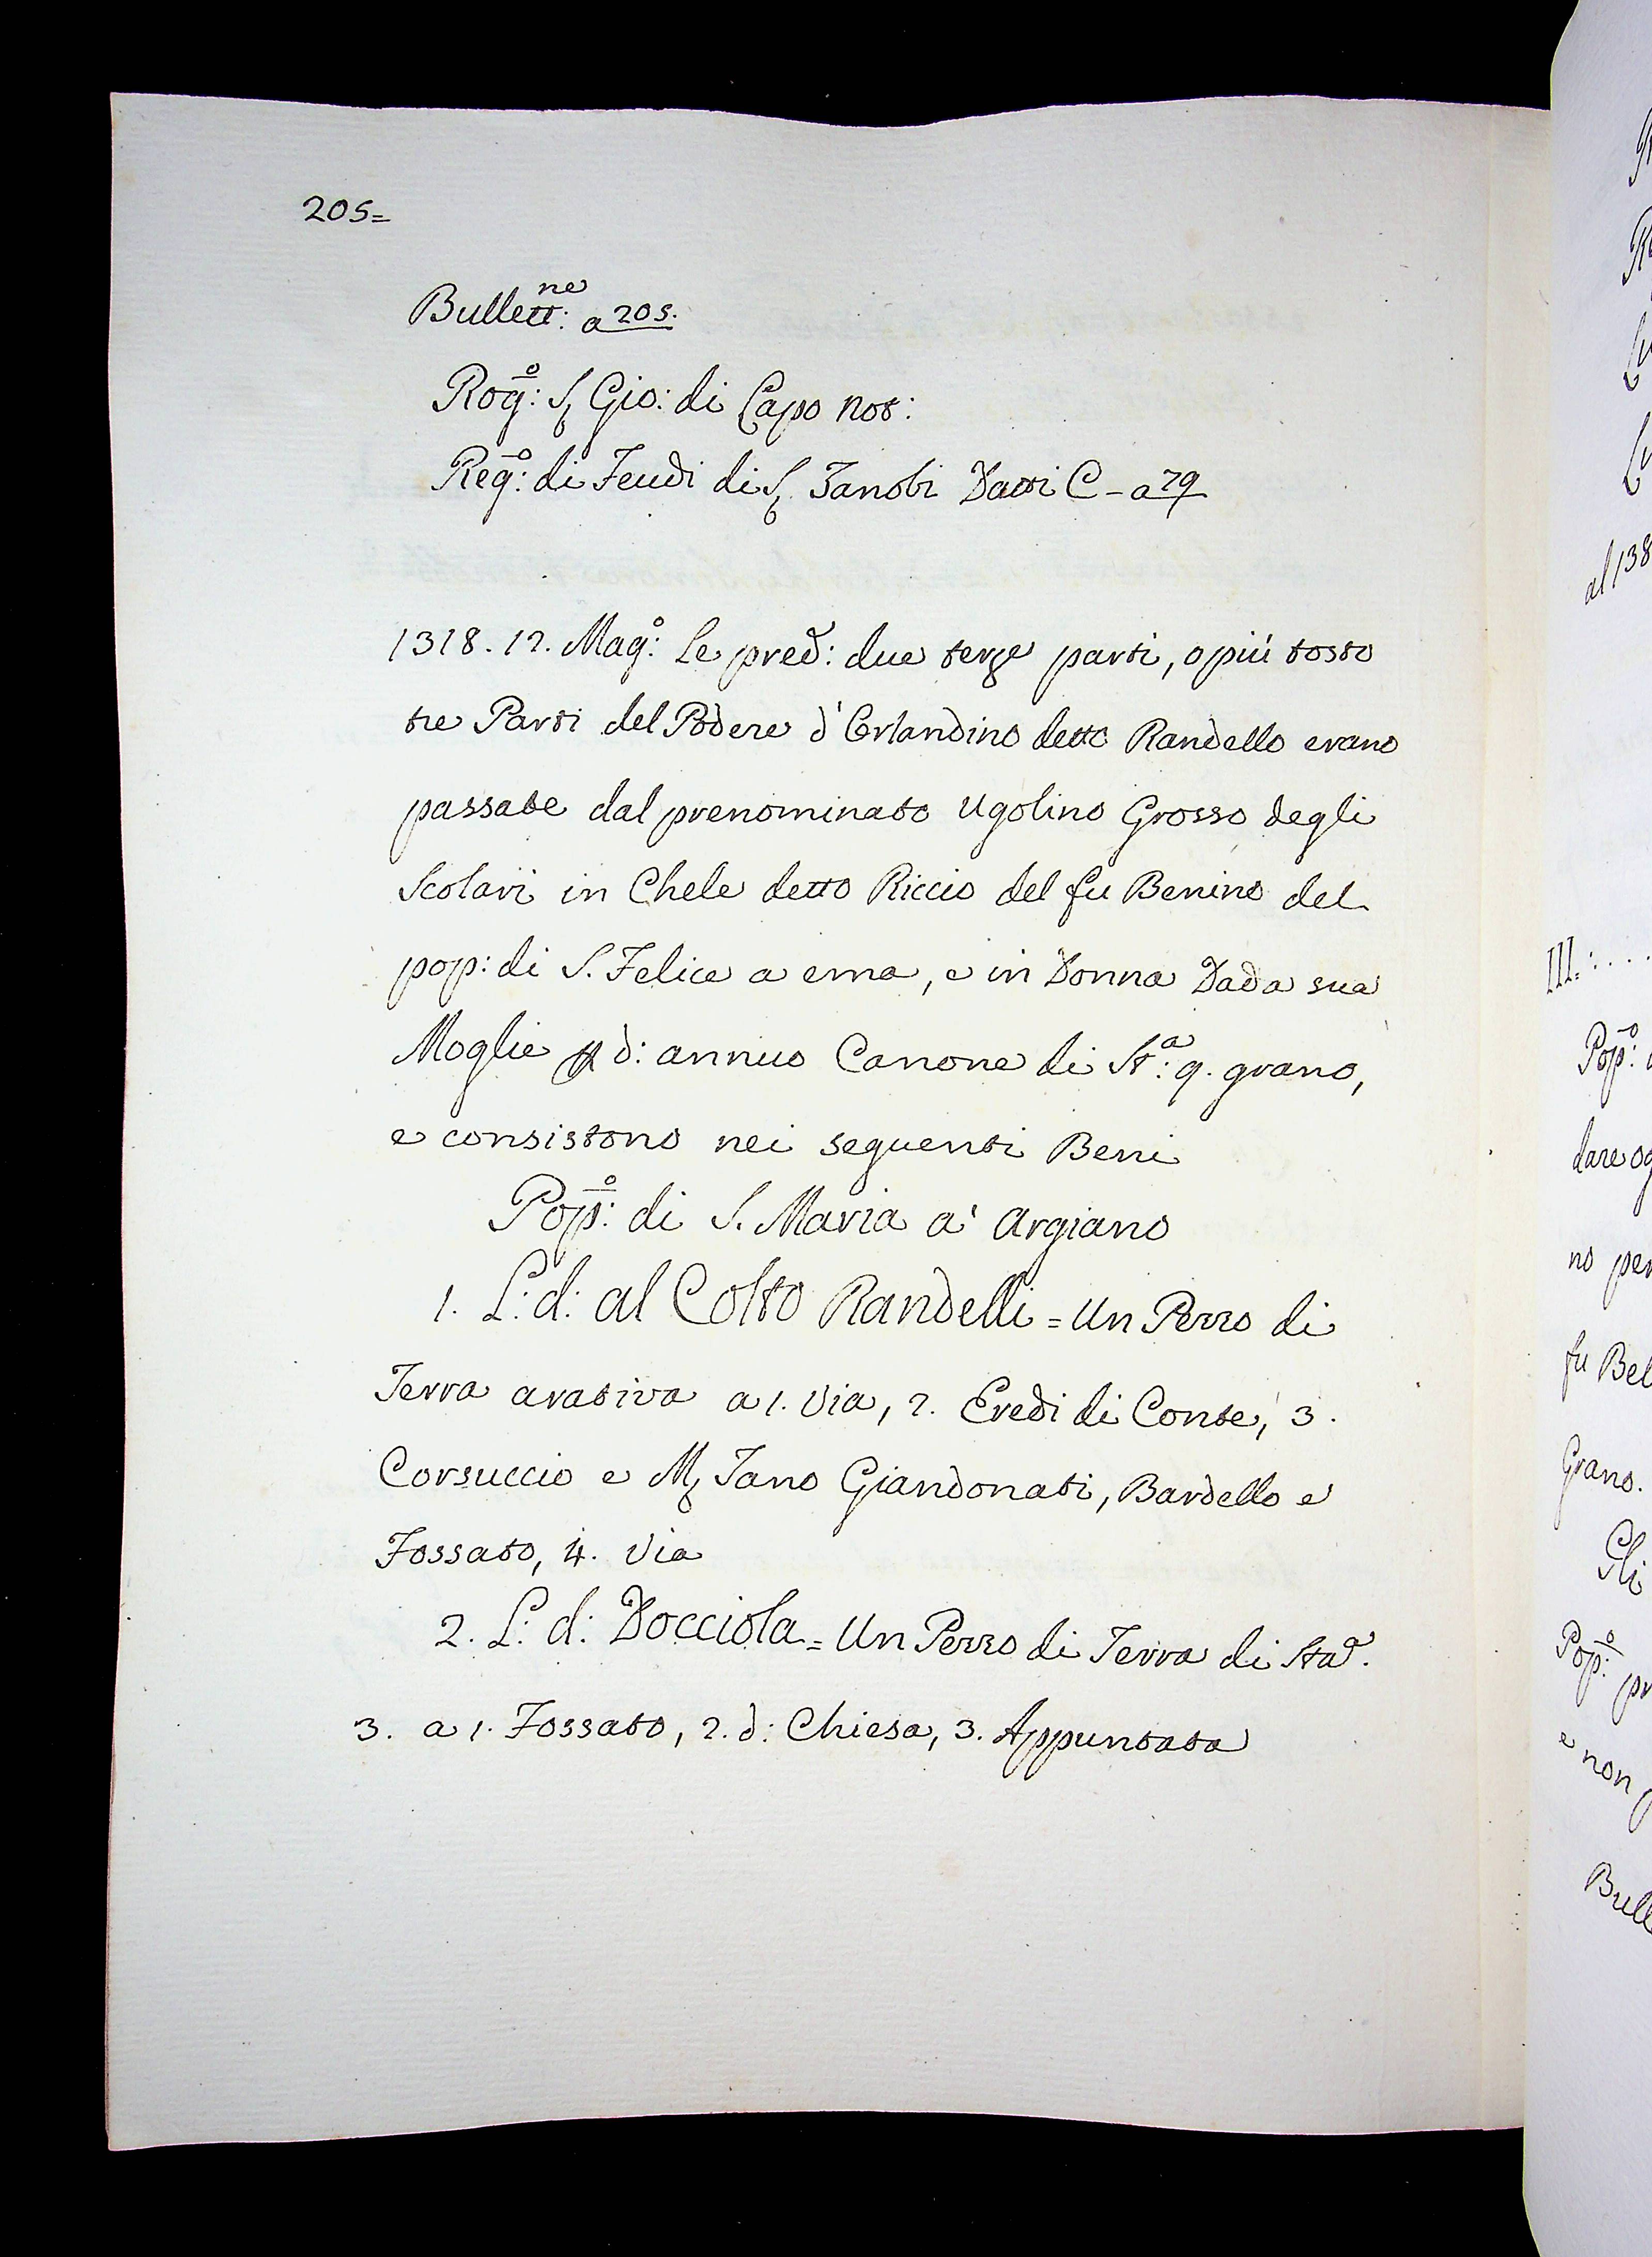 205=
Bullett:ⁿᵉ a 205.
Rog:º S. Gio: di Capo Not:
Reg:º di Feudi di S. Zanobi Datti C - a 79
1318. 12. Mag:º Le pred: due terze parti, o più tosto
tre Parti del Podere d'Orlandino detto Randello erano
passate dal prenominato Ugolino Grosso degli
Scolari in Chele detto Riccio del fu Benino del
pop: di S. Felice a ema, e in Donna Dada sua
Moglie d: annuo Canone di St:ª 9. grano,
e consistono nei seguenti Beni
Pop:º di S. Maria a' Argiano
1. L: d: al Colto Randelli = Un Pezzo di
Terra arativa a 1. Via, 2. Eredi di Conte, 3.
Corsuccio e M. Tano Giandonati, Bardello e
Fossato, 4. Via
2. L: d: Docciola = Un Pezzo di Terra di Staª.
3. a 1. Fossato, 2. d: Chiesa, 3. Appuntata
al 138
III. : . . . .
Pop:º
dare og
no per
fu Bel
Grano.
Gli
Pop:º pr
e non p
Bull